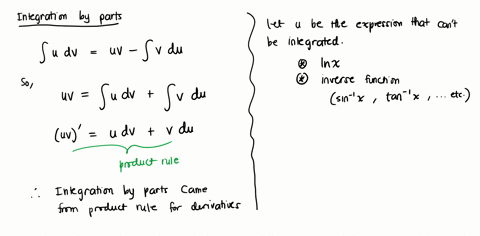 Integration by parts
∫ u dv = uv - ∫ v du
So,
uv = ∫ u dv + ∫ v du
(uv)' = u dv + v du
product rule
∴ Integration by parts came
from product rule for derivatives
Let u be the expression that can't
be integrated.
⊛ lnx
⊛ inverse function
(sin⁻¹x , tan⁻¹x , ... etc.)